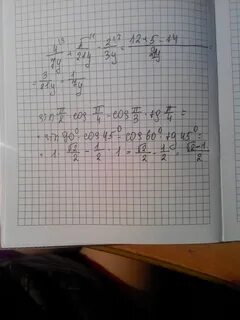 4/7y + 5/21y - 2/3y = (12+5-14)/21y =
= 3/21y = 1/7y
sin π/2 · cos π/4 - cos π/3 · tg π/4 =
= sin 90° · cos 45° - cos 60° · tg 45° =
= 1 · √2/2 - 1/2 · 1 = √2/2 - 1/2 = (√2-1)/2